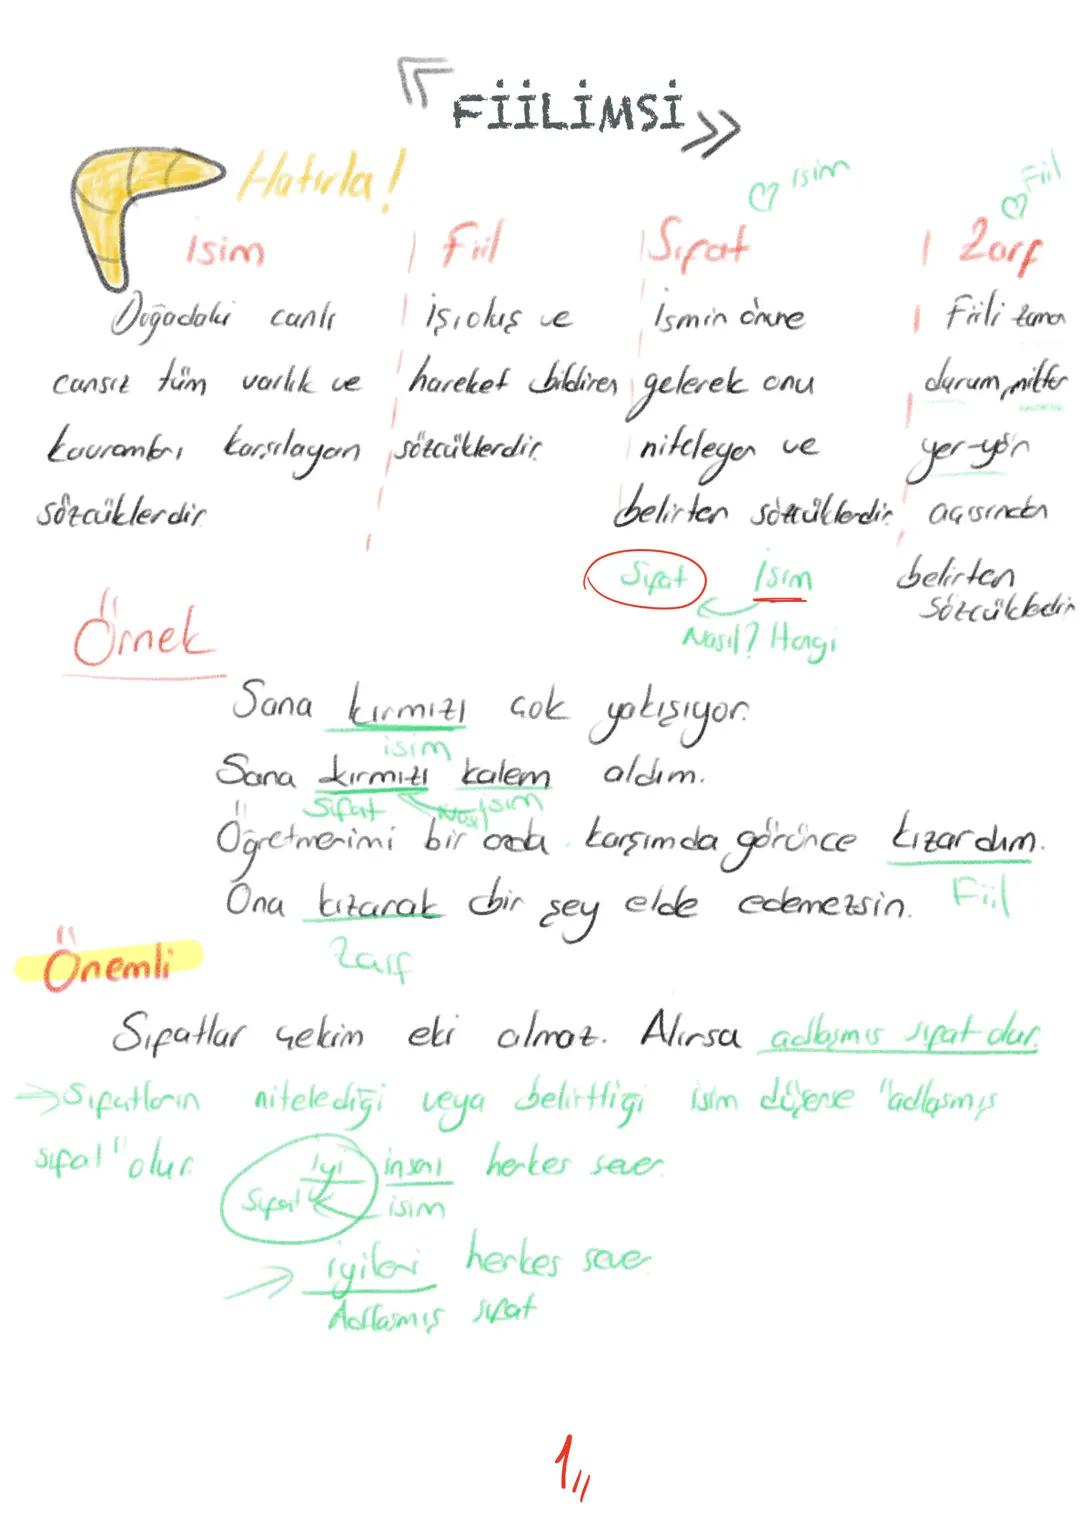 FİİLİMSİ
Hatırla!
isim
Fiil
İsim
Fiil
Sıfat
Zarf
Doğadaki canlı
cansız tüm varlık ve
kavramları karşılayan
sözcüklerdir.
iş, oluş ve
hareket bildiren
sözcüklerdir.
İsmin önüne
gelerek onu
niteleyen ve
belirten sözcüklerdir.
Sıfat İsim
Nasıl? Hangi
Fiili zaman
durum, miktar
yer-yön
açısından
belirten
sözcüklerdir
Örnek
Sana kırmızı çok yakışıyor.
isim
Sana kırmızı kalem aldım.
Sıfat Nasıl isim
Öğretmenimi bir anda karşımda görünce kızardım.
Fiil
Ona kızarak bir şey elde edemezsin.
Zarf
Önemli
Sıfatlar çekim eki almaz. Alırsa adlaşmış sıfat olur.
→ Sıfatların nitelediği veya belirttiği isim düşerse "adlaşmış
sıfat" olur.
İyi insanı herkes sever.
Sıfat isim
→ iyileri herkes sever
Adlaşmış sıfat
1